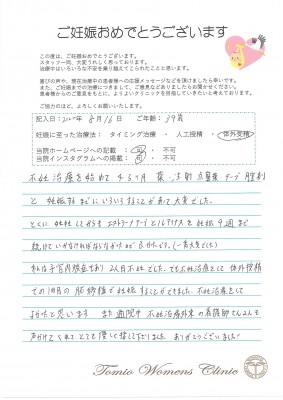 ご妊娠おめでとうございます
この度は、ご妊娠おめでとうございます。
スタッフ一同、大変うれしく思っております。
治療中はいろいろな不安を乗り越えてこられたことと思います。
喜びの声や、現在治療中の患者様への応援メッセージなどを頂けましたら幸いです。
また、ご妊娠までの治療につきまして、ご意見などありましたらお聞かせください。
患者様からのご意見をもとに、よりよいクリニックを目指していきたいと考えております。
ご協力のほど、よろしくお願いいたします。
記入日: 8月16日 ご年齢: 39歳
妊娠に至った治療法: タイミング治療 ・ 人工授精 ・ 体外受精
当院ホームページへの掲載: 可 ・ 不可
当院インスタグラムへの掲載: 可 ・ 不可
不妊治療を始めて 薬・注射 テープ 膣剤
と 妊娠するまでにいろいろなことがあって大変でした。
とくに 妊娠してからも エストラーナテープとルティナスを 妊娠9週まで
続けていかなければならなかった (一番大変でした)
私は子宮内膜症もあり 2人目不妊でした。でも不妊治療をして 体外授精
での1回目の 胚移植で妊娠することができました。不妊治療をして
よかったと思います また 通院中 不妊治療外来の看護師さん
声かけてくれて とても優しく接して下さりました ありがとうございました!
Tomio Womens Clinic